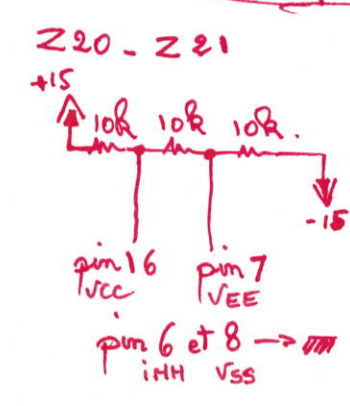 Z20 - Z21
+15
10k 10k 10k.
-15
pin 16 pin 7
VCC VEE
pin 6 et 8 →
iNH VSS